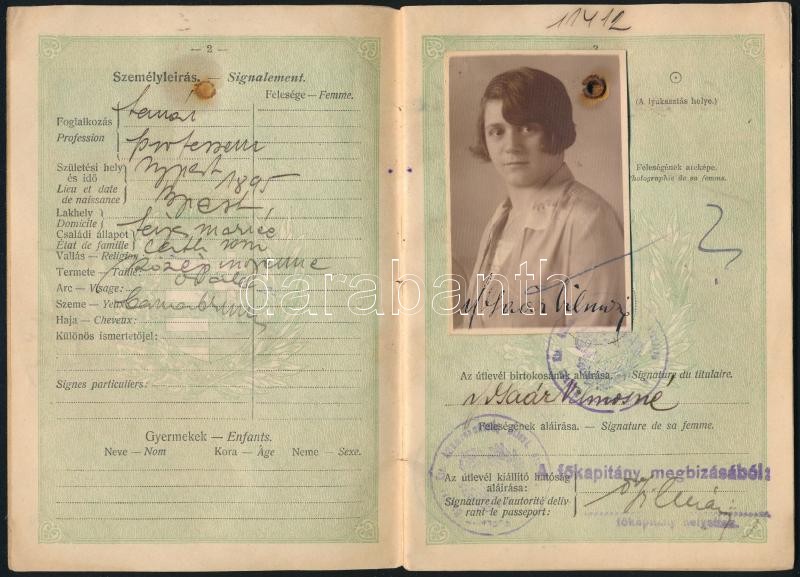 — 2 —
Személyleírás. — Signalement.
Felesége — Femme.
Foglalkozás
Profession
tanár
professeur
Születési hely
és idő
Lieu et date
de naissance
1895
Lakhely
Domicile
Bpest
Családi állapot
État de famille
férj. mariée
Vallás — Religion
cath. rom
Termete — Taille:
közép moyenne
Arc — Visage:
ovale
Szeme — Yeux
barna brun
Haja — Cheveux:
Különös ismertetőjel:
Signes particuliers:
Gyermekek — Enfants.
Neve — Nom Kora — Âge Neme — Sexe.
11412
(A lyukasztás helye.)
Feleségének arcképe.
Photographie de sa femme.
darabanth
Az útlevél birtokosának aláírása. — Signature du titulaire.
v. Gaár Vilmosné
Feleségének aláírása. — Signature de sa femme.
A főkapitány megbizásából:
Az útlevél kiállító hatóság
aláírása:
Signature de l'autorité déliv-
rant le passeport:
főkapitány helyettes.